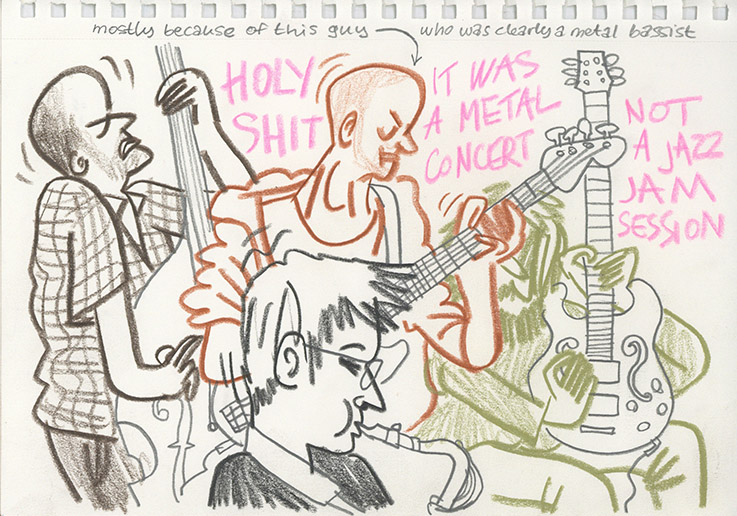 mostly because of this guy → who was clearly a metal bassist
HOLY
SHIT
IT WAS
A METAL
CONCERT
NOT
A JAZZ
JAM
SESSION